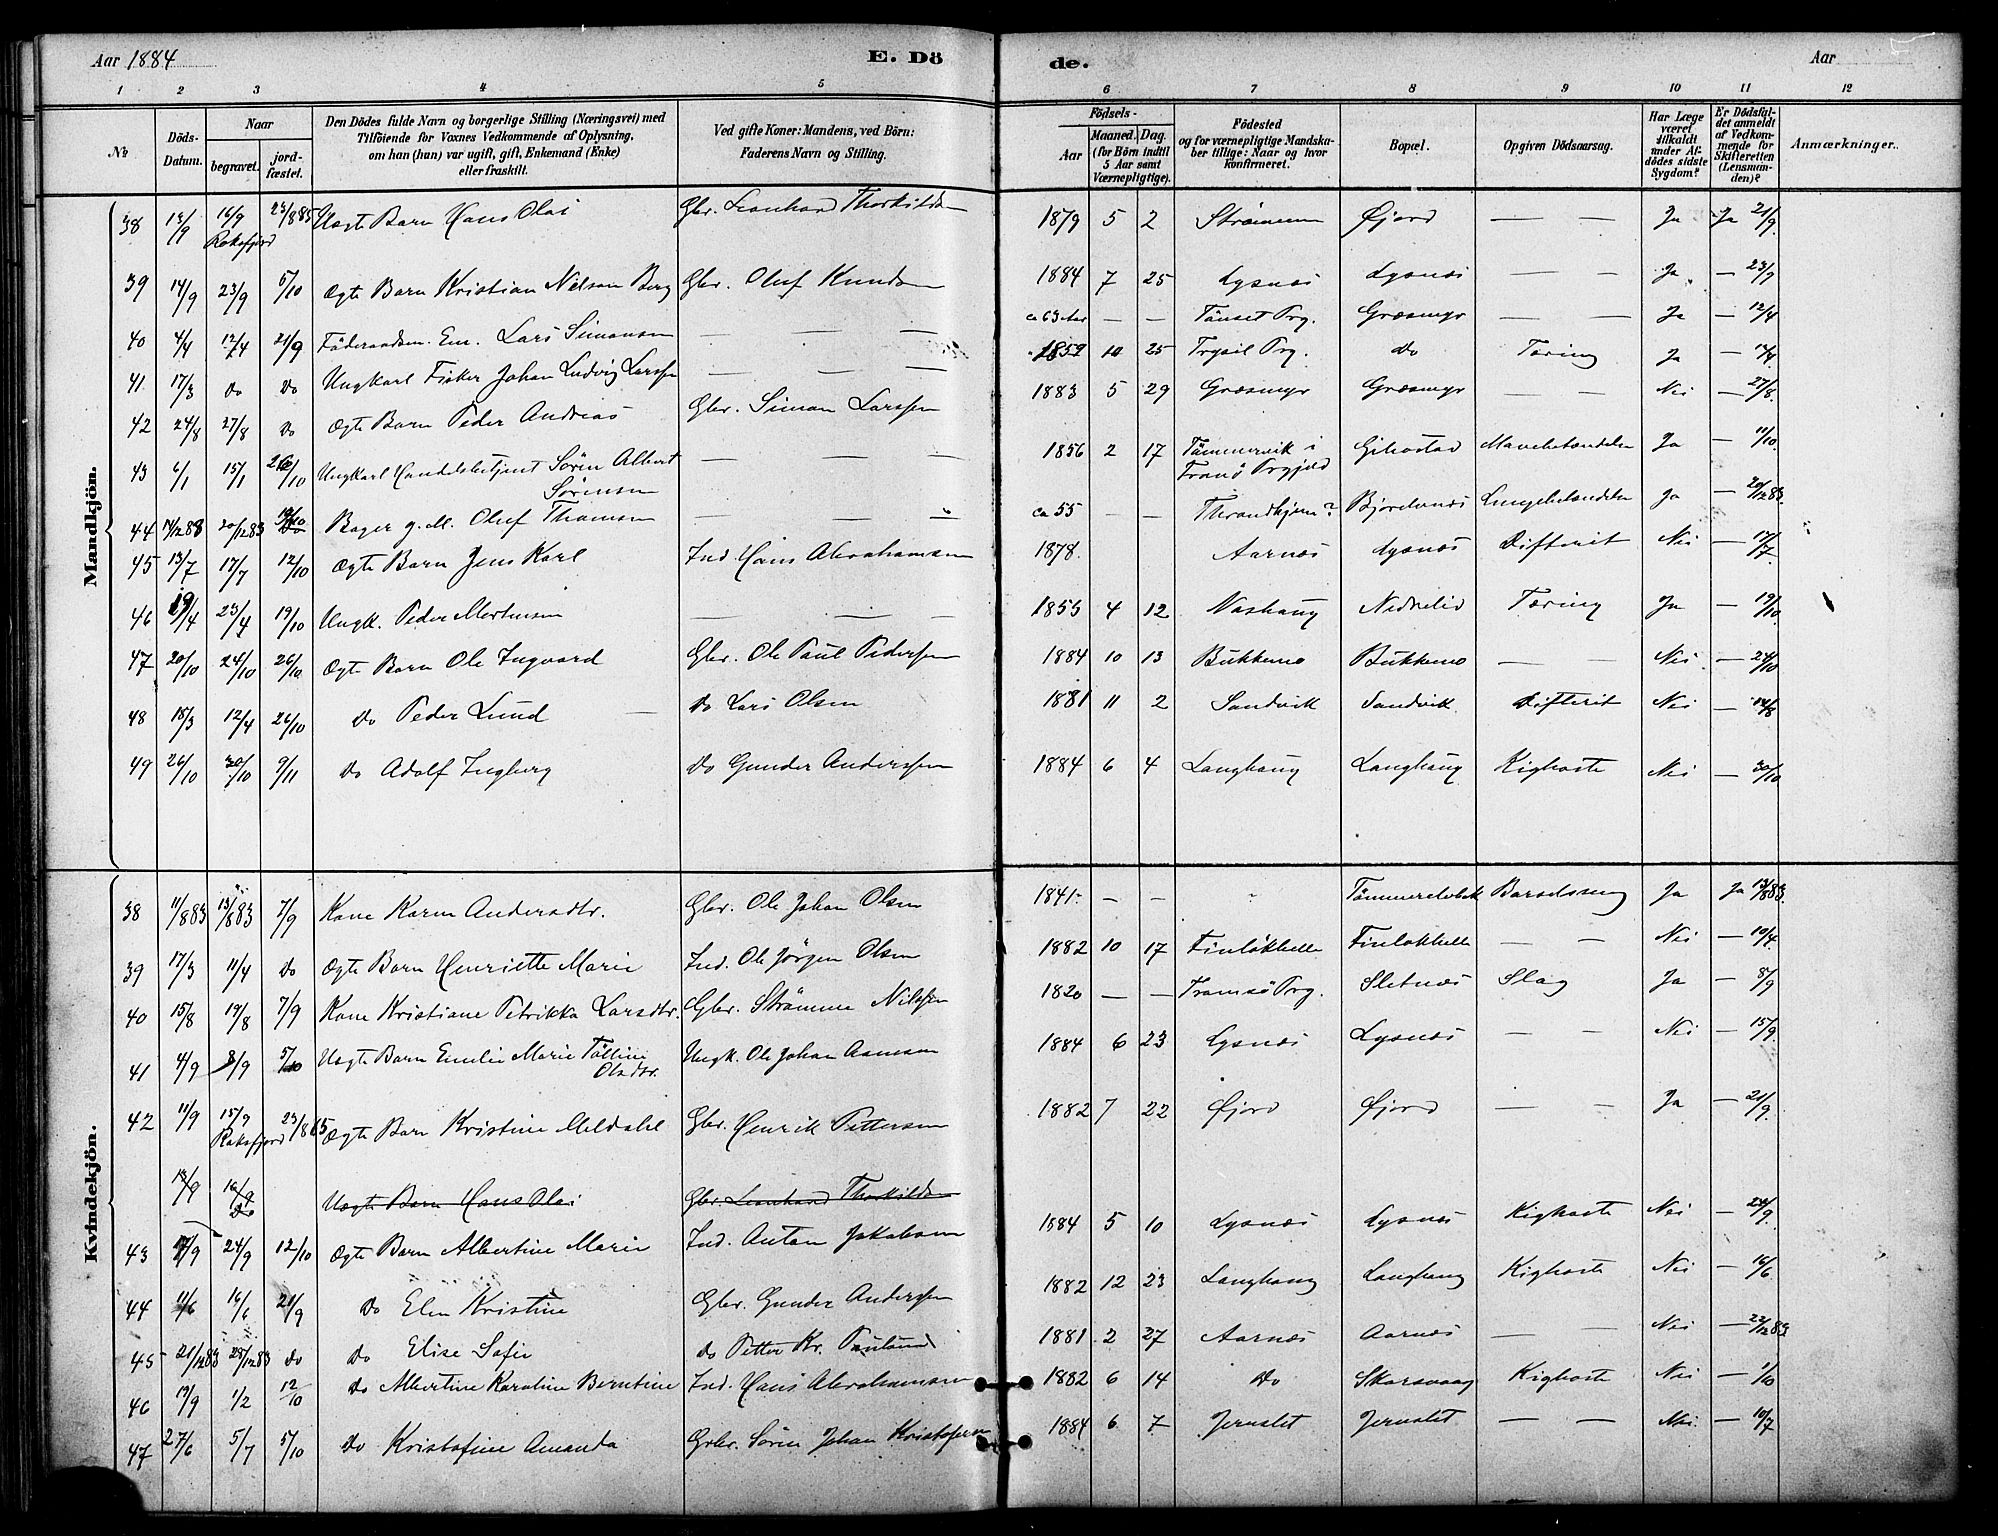 Aar 1884 E. Dö de. Aar
1 2 3 4 5 6 7 8 9 10 11 12
№ Döds-Datum. Naar begravet. jordfæstet. Den Dödes fulde Navn og borgerlige Stilling (Næringsvei) med Tilföiende for Voxnes Vedkommende af Oplysning, om han (hun) var ugift, gift, Enkemand (Enke) eller fraskilt. Ved gifte Koner: Mandens, ved Börn: Faderens Navn og Stilling. Födsels- Aar Maaned. Dag. (for Börn indtil 5 Aar samt Værnepligtige). Födested og for værnepligtige Mandskaber tillige: Naar og hvor konfirmeret. Bopæl. Opgiven Dödsaarsag. Har Læge været tilkaldt under Afdödes sidste Sygdom? Er Dödsfaldet anmeldt af Vedkommende for Skifteretten (Lensmanden)? Anmærkninger.
Mandkjön.
38 13/9 16/9 Roksfjord 23/8 85 Uægte Barn Hans Olai Gbr. Leonhard Thorkilds 1879 5 2 Strömmen Øfjord — — Ja Ja 21/9
39 14/9 23/9 5/10 Ægte Barn Kristian Nilsen Berg Gbr. Oluf Knudsen 1884 7 25 Lysnæs Lysnæs — — Ja — 23/9
40 4/4 12/4 21/9 Föderaadsm. Em. Lars Simonsen — — — ca 63 Aar — — Tönset Prg. Græsmyr — — Ja — 12/4
41 17/3 Do Do Ungkarl Fisker Johan Ludvig Larssen — — — 1859 10 25 Trysil Prg. Do Tæring Ja — 12/4
42 24/8 27/8 Do Ægte Barn Peder Andreas Gbr. Simon Larssen 1883 5 29 Græsmyr Græsmyr — — Nei — 27/8
43 6/1 15/1 26/10 Ungkarl Handelsbetjent Sören Albert Sörensen — — — 1856 2 17 Tömmervik i Tranö Prgjeld Gibostad Mavebetændelse Ja — 11/10
44 14/12 83 20/12 83 19/10 Bager g. M. Oluf Thomsen — — — ca 55 — — Throndhjem? Bjørelvnæs Lungebetændelse Ja — 20/12 83
45 13/7 17/7 12/10 Ægte Barn Jens Karl Ind. Hans Abrahamsen 1878. Aarnæs Lysnæs Difterit Nei — 17/7
46 19/4 23/4 19/10 Ungk. Peder Mortensen — — — 1855 4 12 Vashaug Nedrelid Tæring Ja — 19/10
47 20/10 24/10 26/10 Ægte Barn Ole Ingvard Gbr. Ole Paul Pedersen 1884 10 13 Bukkemo Bukkemo — — Nei — 24/10
48 18/3 12/4 26/10 Do Peder Lund — Do Lars Olsen 1881 11 2 Sandvik Sandvik Difterit Nei — 14/8
49 26/10 30/10 9/11 Do Adolf Ingberg Do Gunder Anderssen 1884 6 4 Langhaug Langhaug Kighoste Nei — 30/10
Kvindekjön.
38 11/8 83 13/8 83 7/9 Kone Karen Andersdtr. Gbr. Ole Johan Olsen 1841 — — Tömmerelvbak Barselseng Ja Ja 13/8 83.
39 17/3 11/4 Do Ægte Barn Henriette Marie Ind. Ole Jørgen Olsen 1882 10 17 Finlökhelle Finlökhelle — — Nei — 10/4
40 15/8 19/8 7/9 Kone Kristiane Petrikka Larsdtr. Gbr. Strömme Nilssen 1820 — — Tromsö Prg. Sletnæs Slag Ja — 8/9
41 4/9 8/9 5/10 Uægte Barn Emilie Marie Tolline Olsdtr. Ungk. Ole Johan Aamsen 1884 6 23 Lysnæs Lysnæs — — Nei — 15/9
42 11/9 15/9 Roksfjord 23/8 85 Ægte Barn Kristine Meldahl Gbr. Henrik Pettersen 1882 7 22 Øfjord Øfjord — — Ja — 21/9
13/9 16/9 Do Uægte Barn Hans Olai Gbr. Leonhard Thorkilds
43 17/9 24/9 12/10 Ægte Barn Albertine Marie Ind. Anton Jakobsen 1884 5 10 Lysnæs Lysnæs Kighoste Nei — 24/9
44 11/6 16/6 21/9 Do Elen Kristine Gbr. Gunder Anderssen 1882 12 23 Langhaug Langhaug Kighoste Nei — 16/6
45 21/12 83 28/12 83 Do Do Elise Sofie Do Petter Kr. Paulund 1881 2 27 Aarnæs Aarnæs — — Nei — 22/12 83
46 19/9 1/2 12/10 Do Albertine Karoline Berntine Ind. Hans Abrahamsen 1882 6 14 Do Skarsvaag Kighoste Nei — 1/10
47 27/6 5/7 5/10 Do Kristofine Amanda Gbr. Sören Johan Kristofersen 1884 6 7 Jernslet Jernslet — — Nei — 10/7